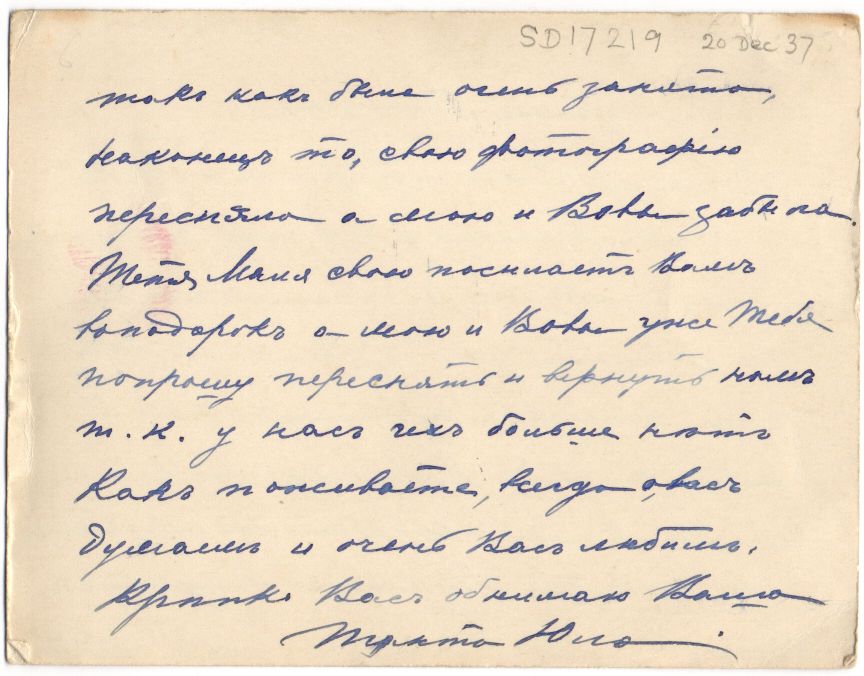 SD17219 20 Dec 37
такъ какъ была очень занята,
наконецъ то, свою фотографію
пересняла а мою и Вовы забыла.
Тетя Маня свою посылаетъ Вамъ
въ подарокъ а мою и Вовы уже Тебя
попрошу переснять и вернуть намъ
т. к. у насъ ихъ больше нѣтъ
Какъ поживаете, всегда о Васъ
думаемъ и очень Васъ любимъ.
Крѣпко Васъ обнимаю Ваша
Танта Юла